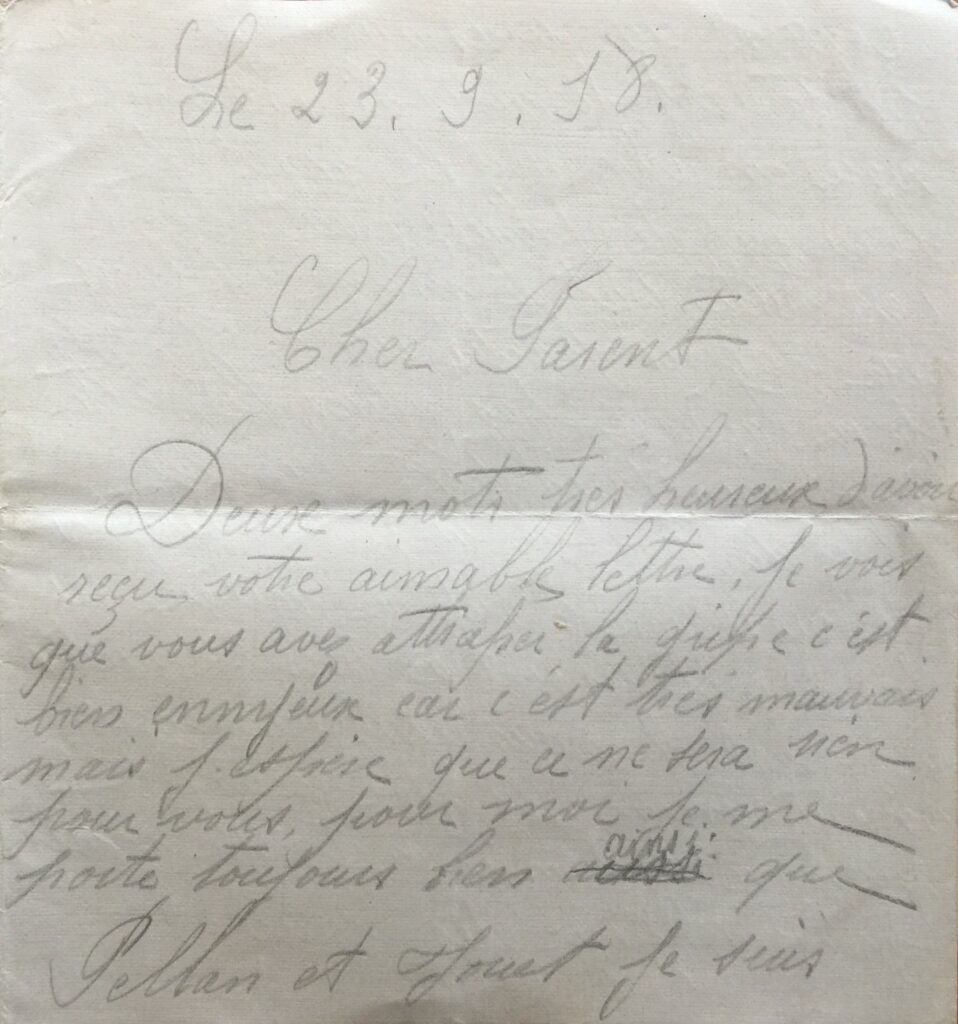 Le 23. 9. 18.
Cher Parent
Deux mots très heureux d'avoir
reçu votre aimable lettre. Je vois
que vous avez attraper la gripe c'est
bien ennyeux car c'est très mauvais
mais j'espère que ce ne sera rien
pour vous, pour moi je me
porte toujours bien ainsi que
Pellan et Je suis